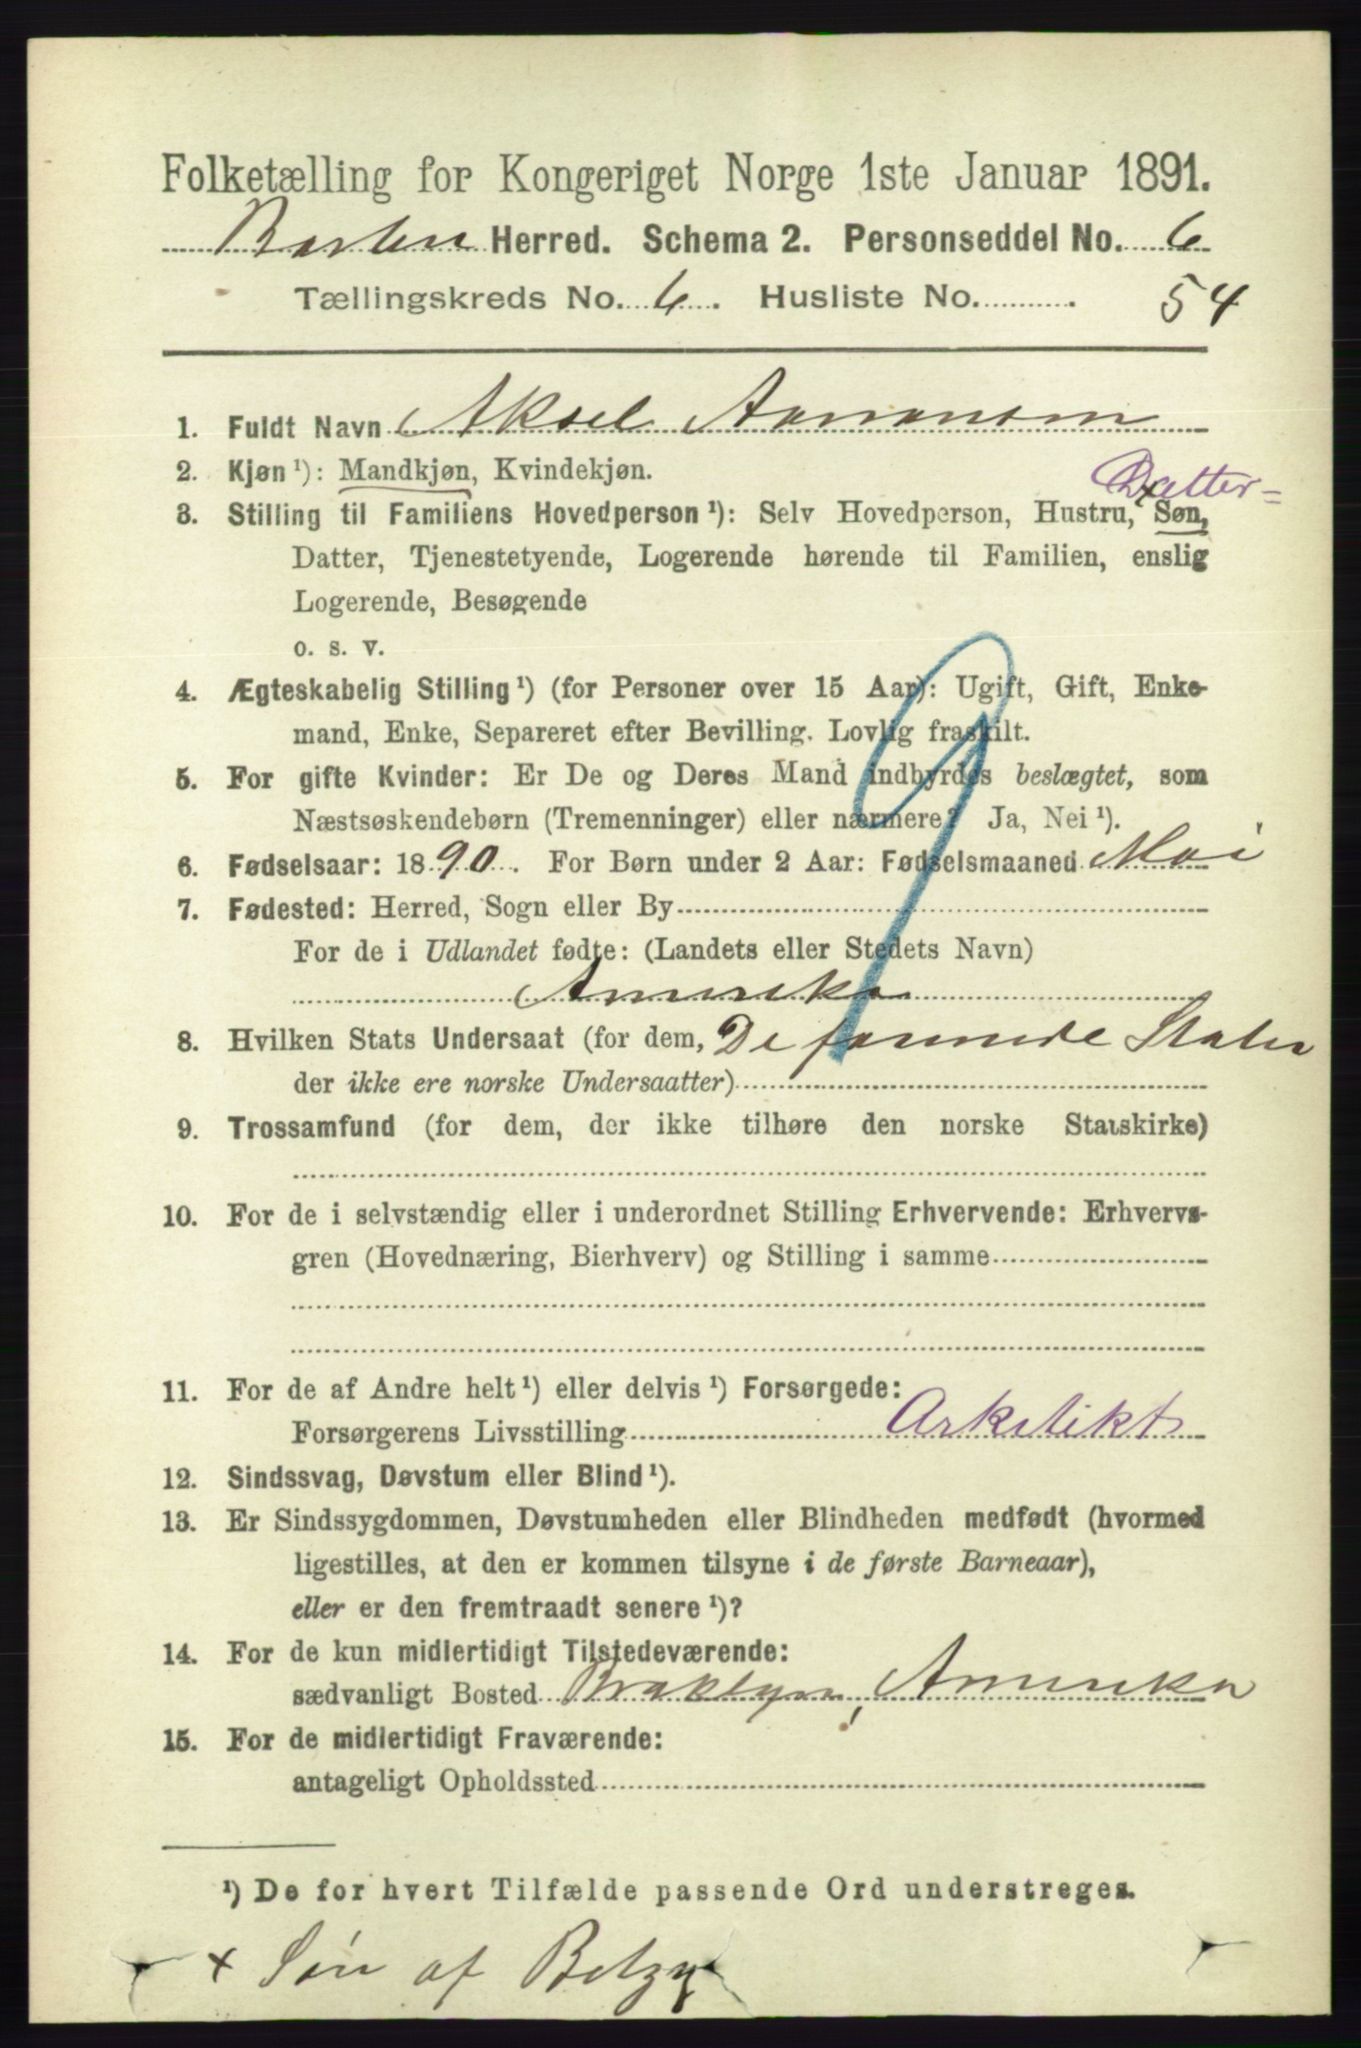 Folketælling for Kongeriget Norge 1ste Januar 1891.
Herred. Schema 2. Personseddel No. 6
Tællingskreds No. 6. Husliste No. 54
1. Fuldt Navn Aksel
2. Kjøn ¹): Mandkjøn, Kvindekjøn.
Datter=
3. Stilling til Familiens Hovedperson ¹): Selv Hovedperson, Hustru, × Søn,
Datter, Tjenestetyende, Logerende hørende til Familien, enslig
Logerende, Besøgende
o. s. v.
4. Ægteskabelig Stilling ¹) (for Personer over 15 Aar): Ugift, Gift, Enke-
mand, Enke, Separeret efter Bevilling. Lovlig fraskilt.
5. For gifte Kvinder: Er De og Deres Mand indbyrdes beslægtet, som
Næstsøskendebørn (Tremenninger) eller nærmere? Ja, Nei ¹).
6. Fødselsaar: 1890. For Børn under 2 Aar: Fødselsmaaned Mai
7. Fødested: Herred, Sogn eller By
For de i Udlandet fødte: (Landets eller Stedets Navn)
Amerika
8. Hvilken Stats Undersaat (for dem, De forenede Stater
der ikke ere norske Undersaatter)
9. Trossamfund (for dem, der ikke tilhøre den norske Statskirke)
10. For de i selvstændig eller i underordnet Stilling Erhvervende: Erhvervs-
gren (Hovednæring, Bierhverv) og Stilling i samme
11. For de af Andre helt ¹) eller delvis ¹) Forsørgede:
Forsørgerens Livsstilling Arkitekt
12. Sindssvag, Døvstum eller Blind ¹).
13. Er Sindssygdommen, Døvstumheden eller Blindheden medfødt (hvormed
ligestilles, at den er kommen tilsyne i de første Barneaar),
eller er den fremtraadt senere ¹)?
14. For de kun midlertidigt Tilstedeværende:
sædvanligt Bosted Broklyn, Amerika
15. For de midlertidigt Fraværende:
antageligt Opholdssted
¹) De for hvert Tilfælde passende Ord understreges.
× Søn af Betzy